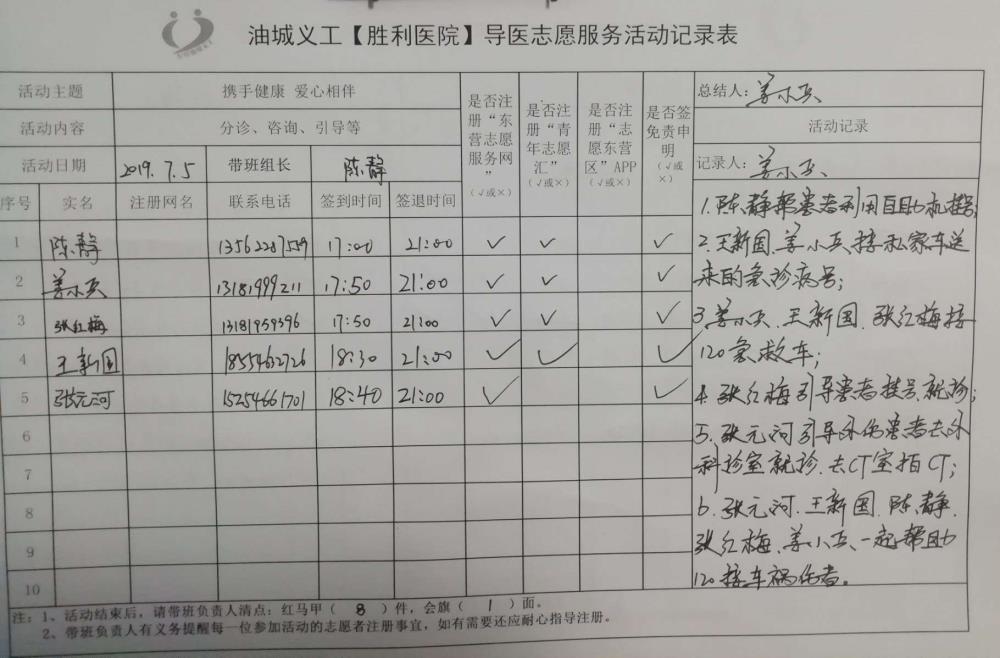 油城义工【胜利医院】导医志愿服务活动记录表
活动主题 携手健康 爱心相伴
活动内容 分诊、咨询、引导等
活动日期 2019.7.5 带班组长 陈静
序号 实名 注册网名 联系电话 签到时间 签退时间 是否注册“东营志愿服务网” (√或×) 是否注册“青年志愿汇” (√或×) 是否注册“志愿东营区”APP (√或×) 是否签免责申明 (√或×)
1 陈静 13562287559 17:00 21:00 ✓ ✓ ✓
2 姜小兵 13181999211 17:50 21:00 ✓ ✓ ✓
3 张红梅 13181959396 17:50 21:00 ✓ ✓ ✓
4 王新国 18554632726 18:30 21:00 ✓ ✓ ✓
5 张元河 15254661701 18:40 21:00 ✓ ✓
6
7
8
9
10
总结人：姜小兵
活动记录
记录人：姜小兵
1.陈静帮患者利用自助机挂号;
2.王新国.姜小兵接私家车送
来的急诊病号;
3.姜小兵.王新国.张红梅接
120急救车;
4.张红梅引导患者挂号.就诊;
5.张元河引导外伤患者去外
科诊室就诊.去CT室拍CT;
6.张元河.王新国.陈静.
张红梅.姜小兵.一起帮助
120接车祸伤者。
注：1、活动结束后，请带班负责人清点：红马甲（ 8 ）件，会旗（ 1 ）面。
2、带班负责人有义务提醒每一位参加活动的志愿者注册事宜，如有需要还应耐心指导注册。